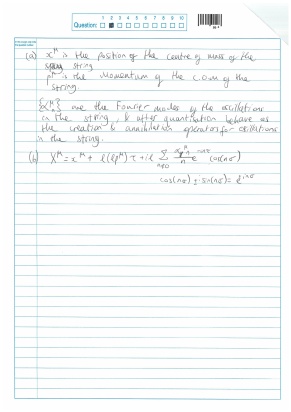 Question:
1 2 3 4 5 6 7 8 9 10
(a) x^μ is the position of the centre of mass of the
string
p^μ is the momentum of the C.O.M of the
string.
{α^μ_n} are the Fourier modes of the oscillations
on the string & after quantisation behave as
the creation & annihilation operators for oscillations
in the string.
(b) X^μ = x^μ + l(lp^μ)τ + il Σ_{n≠0} α^μ_n/n e^{-inτ} cos(nσ)
cos(nσ) ± i sin(nσ) = e^{inσ}